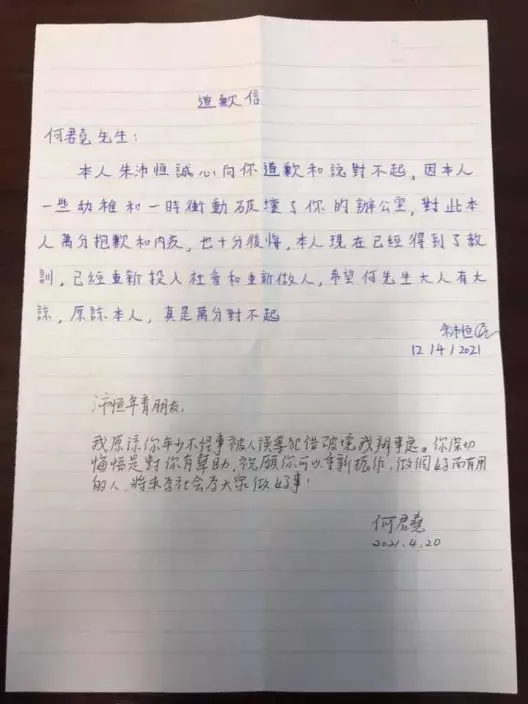 道歉信
何君堯先生:
本人朱沛恒誠心向你道歉和說對不起,因本人
一些幼稚和一時衝動破壞了你的辦公室,對此本
人萬分抱歉和内疚,也十分後悔,本人現在已經得到了教
訓,已經重新投入社會和重新做人,希望何先生大人有大
諒,原諒本人,真是萬分對不起
朱沛恒
12/4/2021
沛恒年青朋友,
我原諒你年少不經事被人誤導犯錯破壞我辦事處。你深切
悔悟是對你有幫助,祝願你可以重新振作,做個好而有用
的人,將來為社會為大眾做好事!
何君堯
2021.4.20